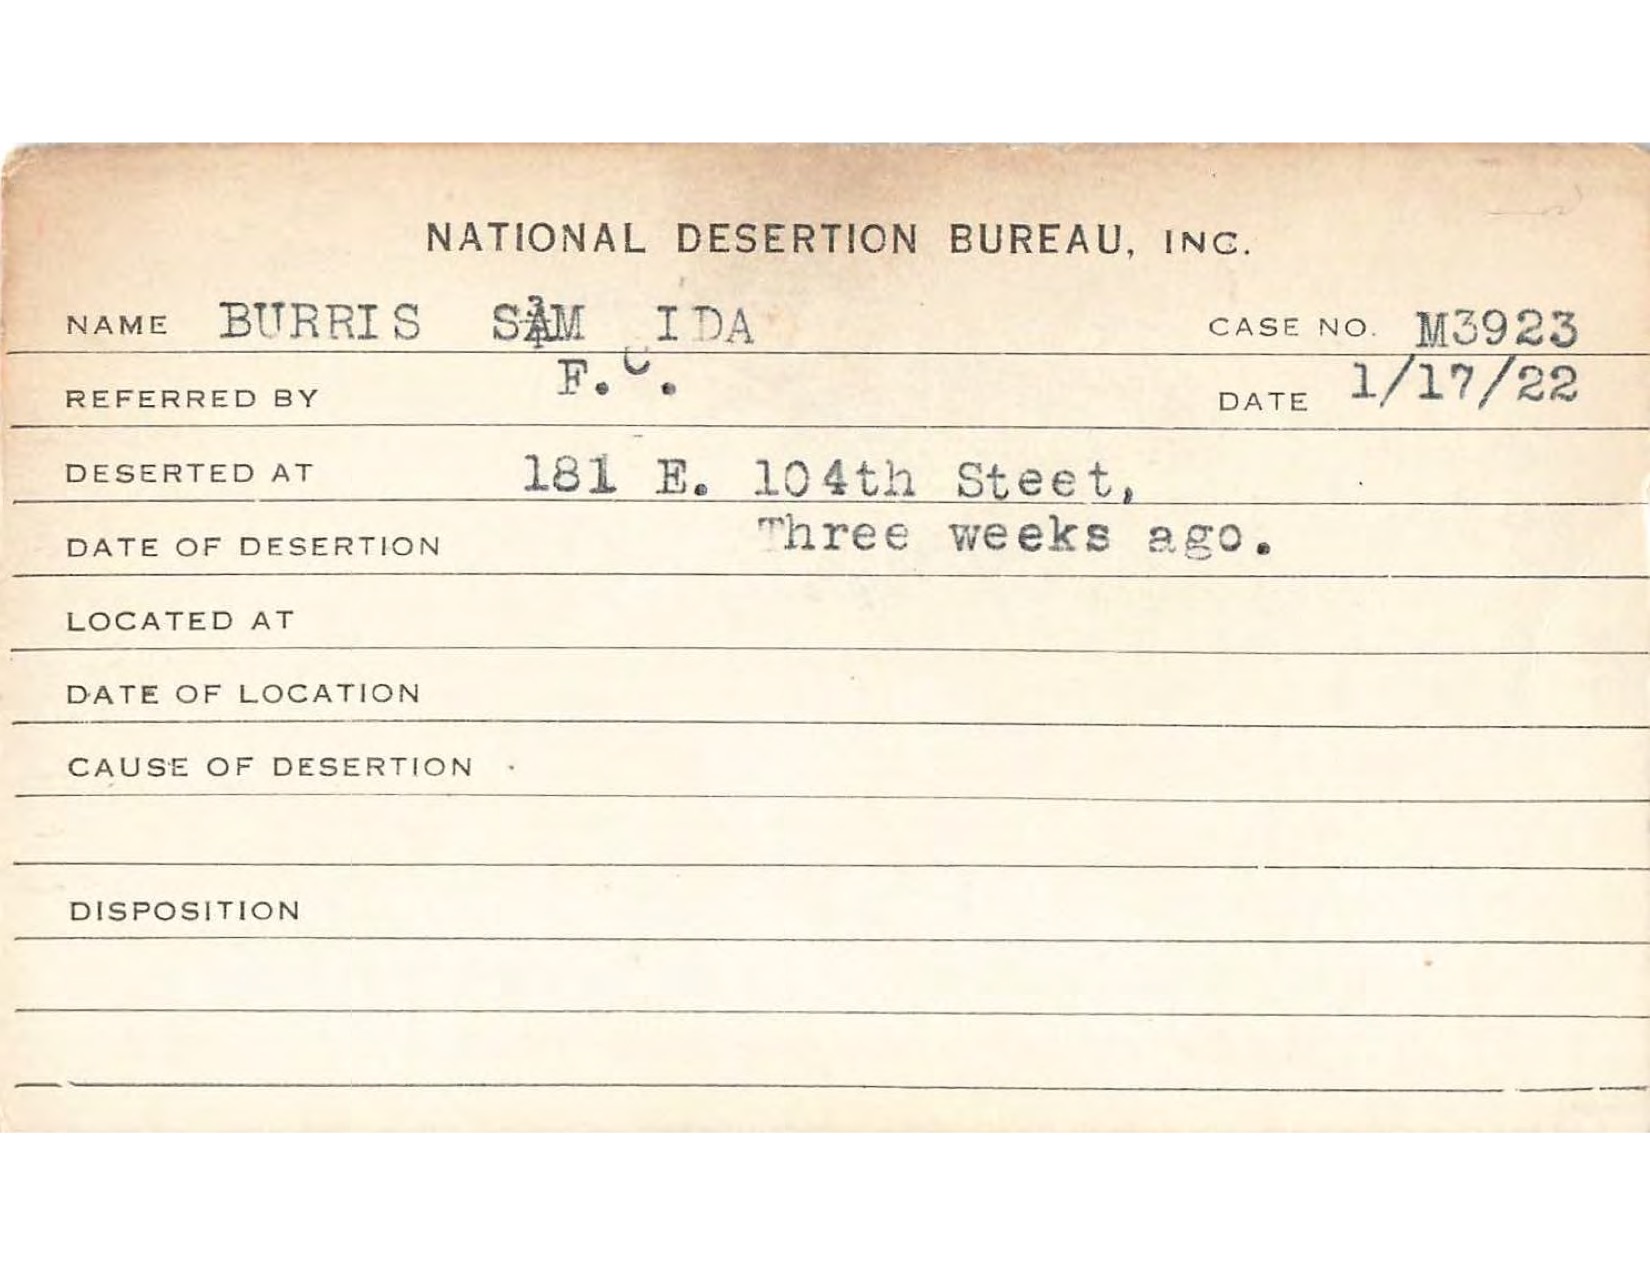 NATIONAL DESERTION BUREAU, INC.
NAME BURRIS SAM IDA CASE NO. M3923
REFERRED BY F.C. DATE 1/17/22
DESERTED AT 181 E. 104th Steet,
DATE OF DESERTION Three weeks ago.
LOCATED AT
DATE OF LOCATION
CAUSE OF DESERTION
DISPOSITION